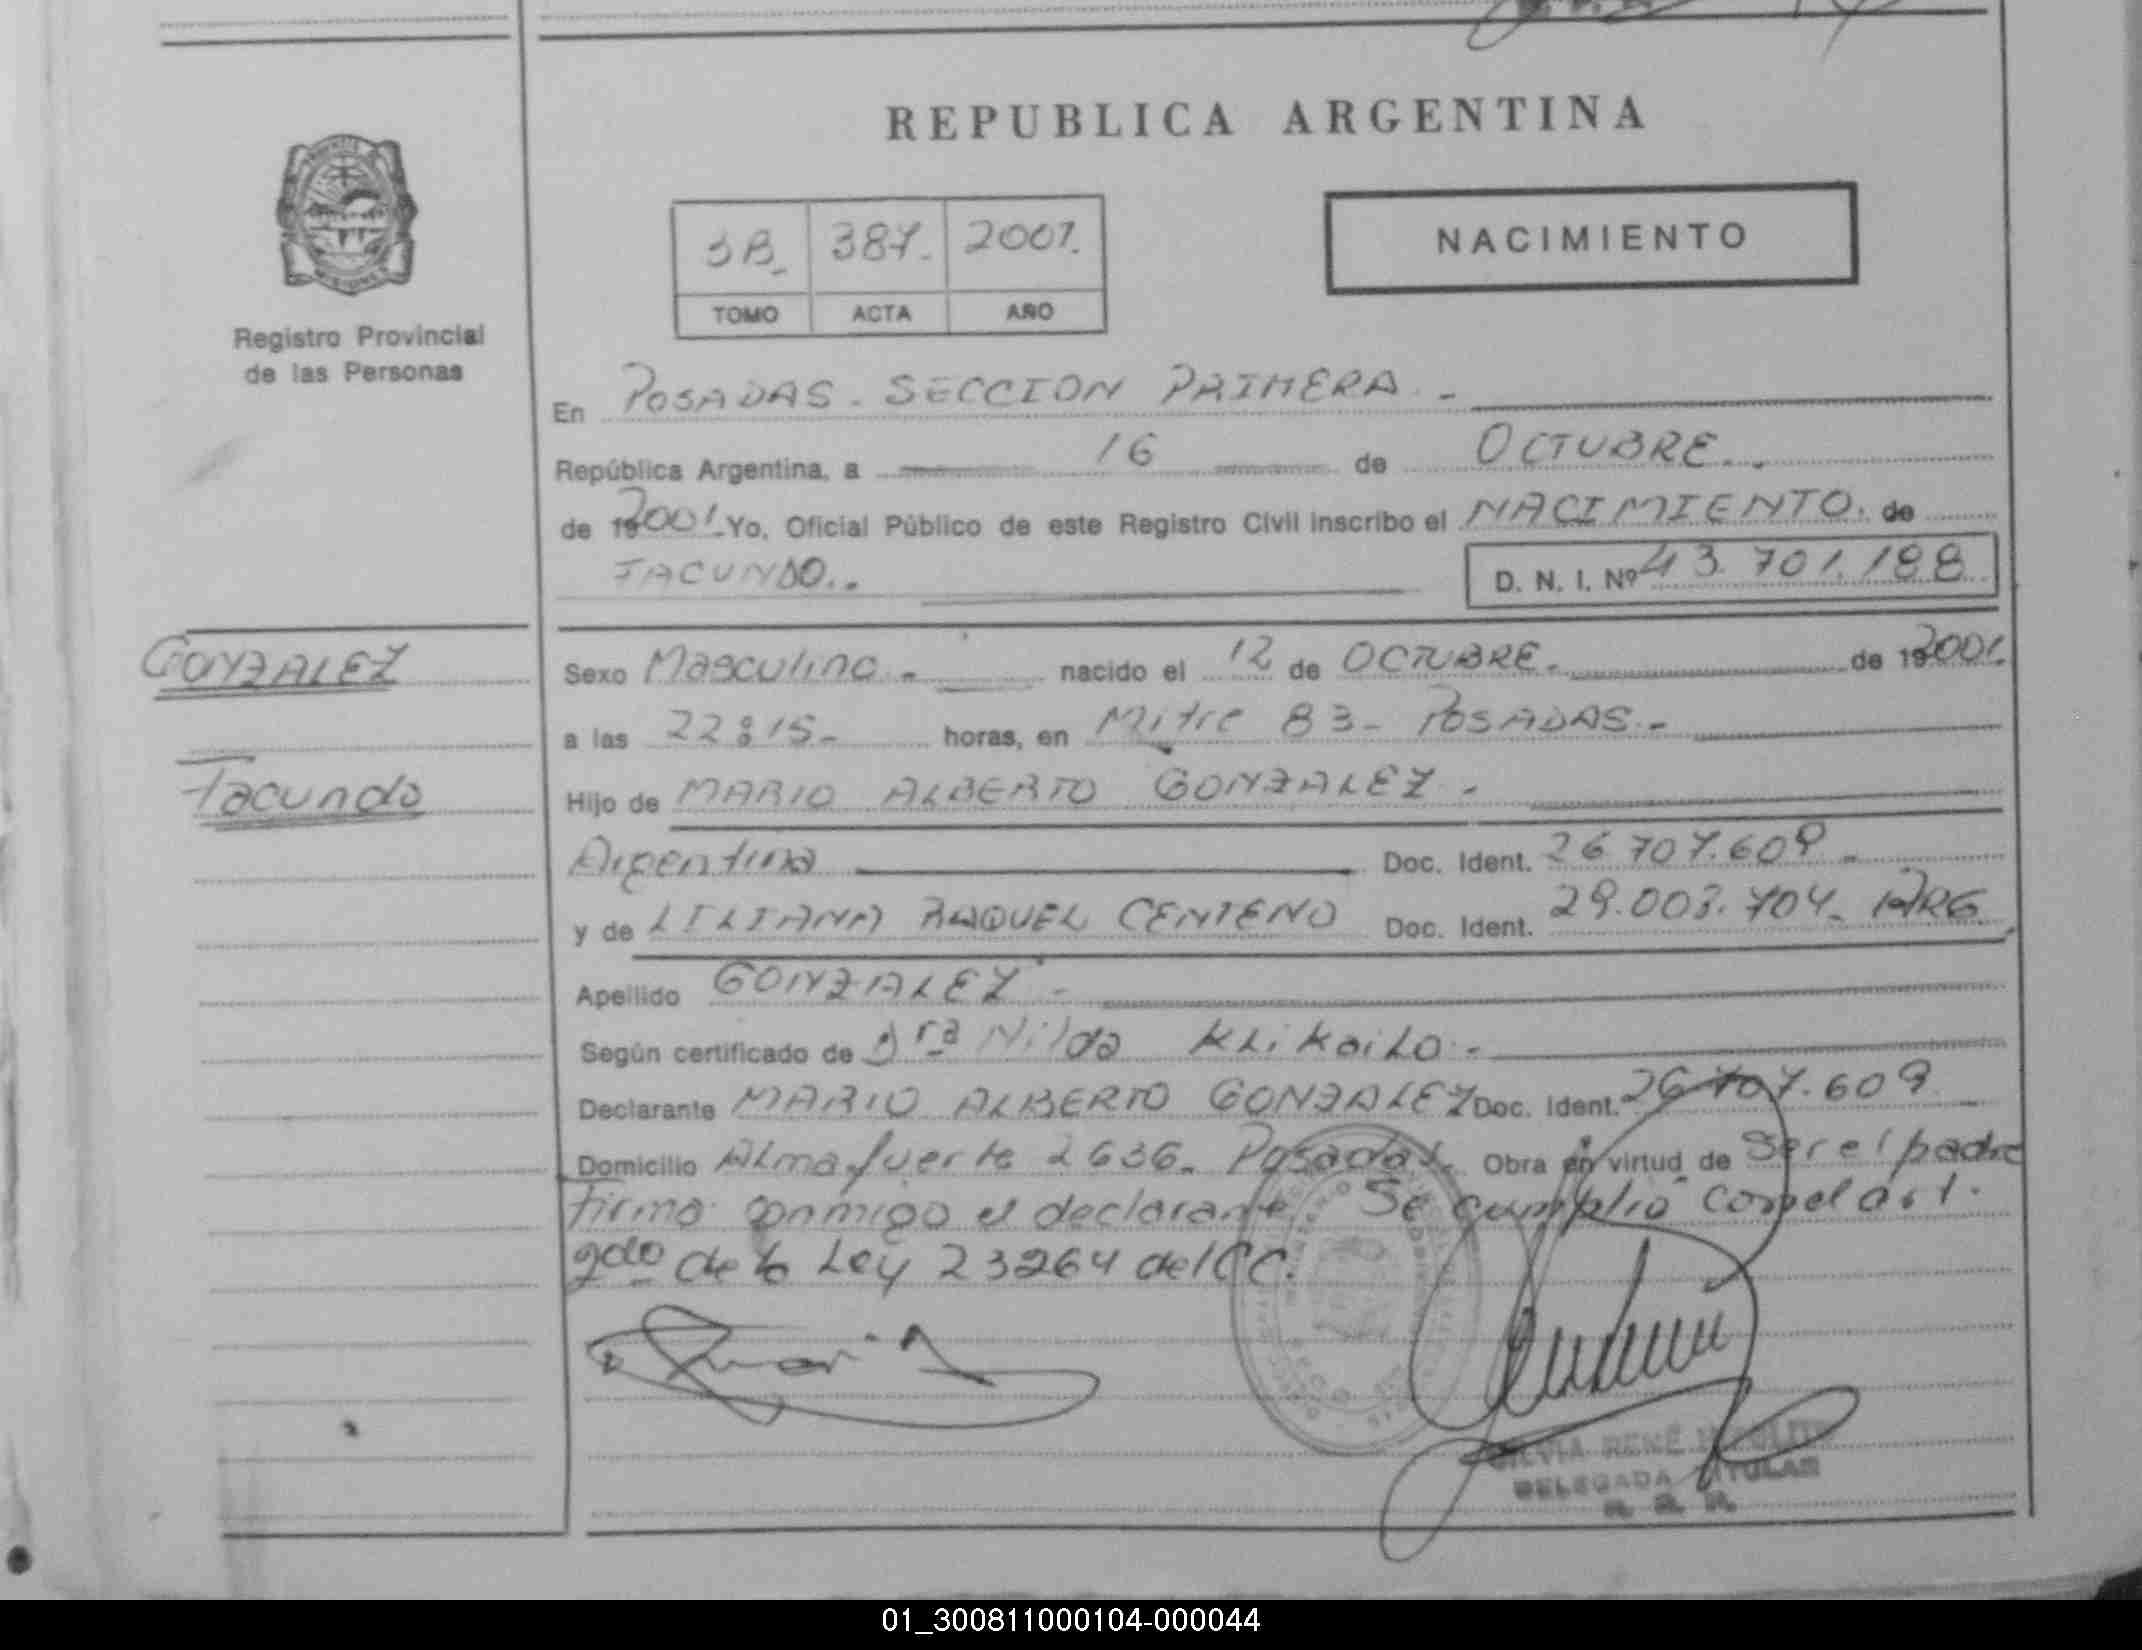 REPUBLICA ARGENTINA
NACIMIENTO
3B_ 387_ 2001.
TOMO ACTA AÑO
Registro Provincial
de las Personas
En POSADAS - SECCION PRIMERA. -
República Argentina, a 16 de OCTUBRE..
de 19 2001. Yo, Oficial Público de este Registro Civil inscribo el NACIMIENTO. de
FACUNDO.. D. N. I. Nº 43.701.188
GONZALEZ
Facundo
Sexo Masculino - nacido el 12 de OCTUBRE. de 19 2001.
a las 22:15- horas, en Mitre 83- POSADAS.-
Hijo de MARIO ALBERTO GONZALEZ.-
Argentina Doc. Ident. 26.707.609_
y de LILIANA RAQUEL CENTENO Doc. Ident. 29.003.704_ ARG.
Apellido GONZALEZ -
Según certificado de Dra Nilda Klikailo.-
Declarante MARIO ALBERTO GONZALEZ Doc. Ident. 26.707.609_
Domicilio Almafuerte 2636_ Posadas. Obra en virtud de Ser el padre
firma conmigo el declarante Se cumplió con el art.
2do de la Ley 23264 del CC.
SILVIA RENÉ
DELEGADA TITULAR
01_300811000104-000044